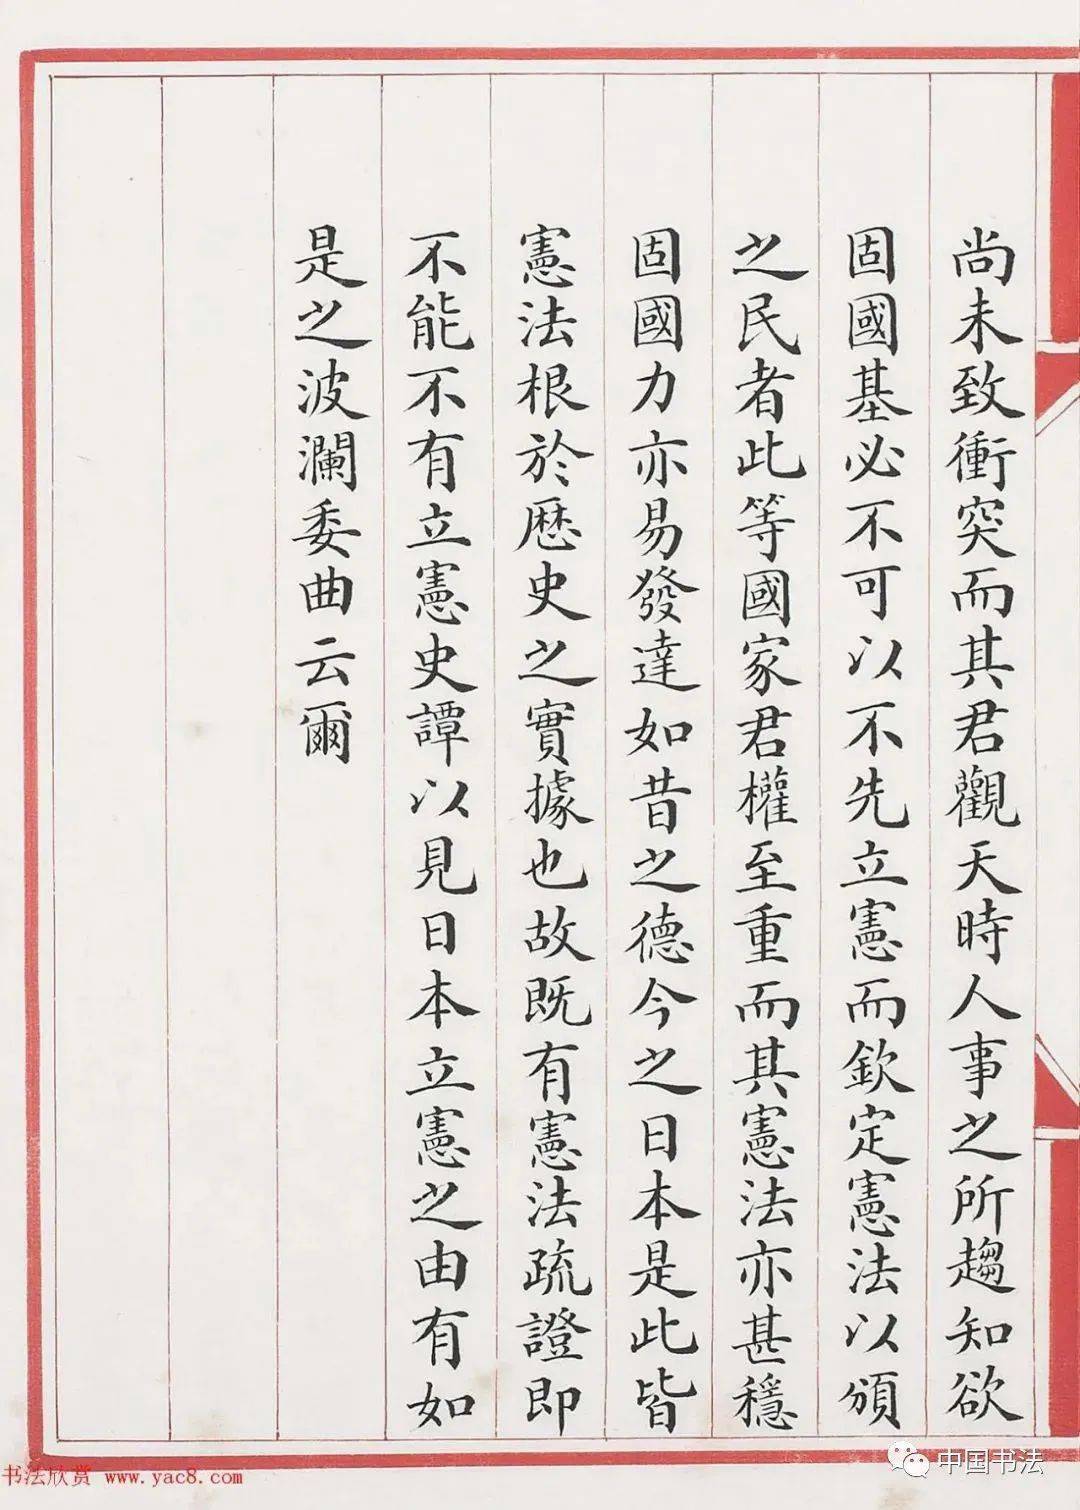 尚未致衝突而其君觀天時人事之所趨知欲
固國基必不可以不先立憲而欽定憲法以頒
之民者此等國家君權至重而其憲法亦甚穩
固國力亦易發達如昔之德今之日本是此皆
憲法根於歷史之實據也故既有憲法疏證即
不能不有立憲史譚以見日本立憲之由有如
是之波瀾委曲云爾
书法欣赏 www.yac8.com
中国书法